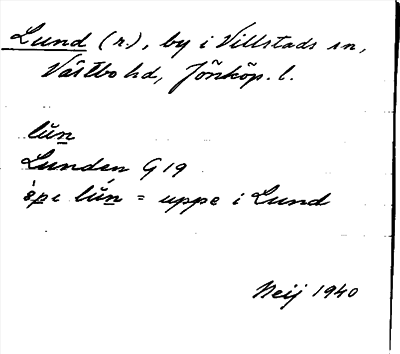 Lund (r.), by i Villstads sn,
Västbo hd, Jönköp. l.
lŭn
Lunden G 19
èpe lŭ́n = uppe i Lund
Neij 1940